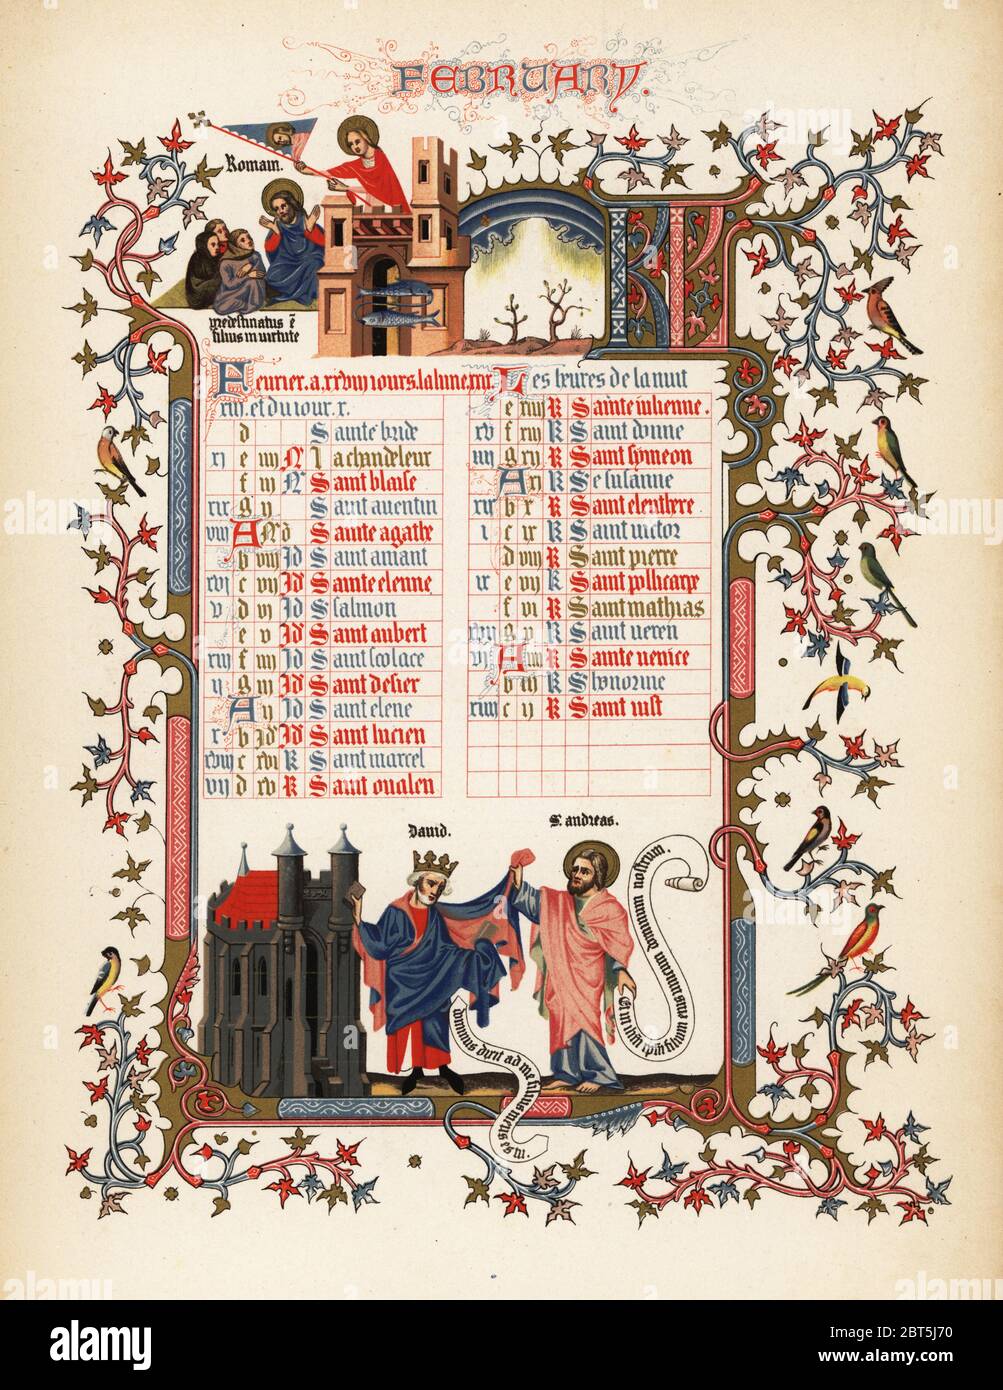 FEBRUARY.
Romain.
predestinatus ē
filius in virtute
Feurier. a. xxviij iours. la lune. xxx.
xiij. et du iour. x.
d Sainte bride
xj e iiij N La chandeleur
f iij N Saint blaise
xix g ij Saint auentin
viij A Nō Sainte agathe
b viij Id Saint amant
xvj c vij Id Sainte elenne
v d vj Id Ssalmon
e v Id Saint aubert
xiij f iiij Id Saint scolace
ij g iij Id Saint desier
A ij Id Saint elene
x b Id Id Saint lucien
xviij c xvi K Saint marcel
vij d xv K Saint oualen
Les heures de la nuit
e xiiij K Sainte iulienne.
xv f xiij K Saint donne
iiij g xij K Saint symeon
A xj K Se susanne
xij b x K Saint eleuthere
i c ix K Saint uictor
d viij K Saint pierre
ix e vij K Saint pollicarpe
f vi K Saint mathias
xvij g v K Saint ueren
vj A iiij K Sainte uenice
b iij K S honorine
xiiij c ij K Saint iust
Dauid.
S. andreas.
dominus dixit ad me filius meus es tu.
Et in ihm xpm filium eius unicum dominum nostrum.
alamy
Image ID: 2BT5J70
www.alamy.com